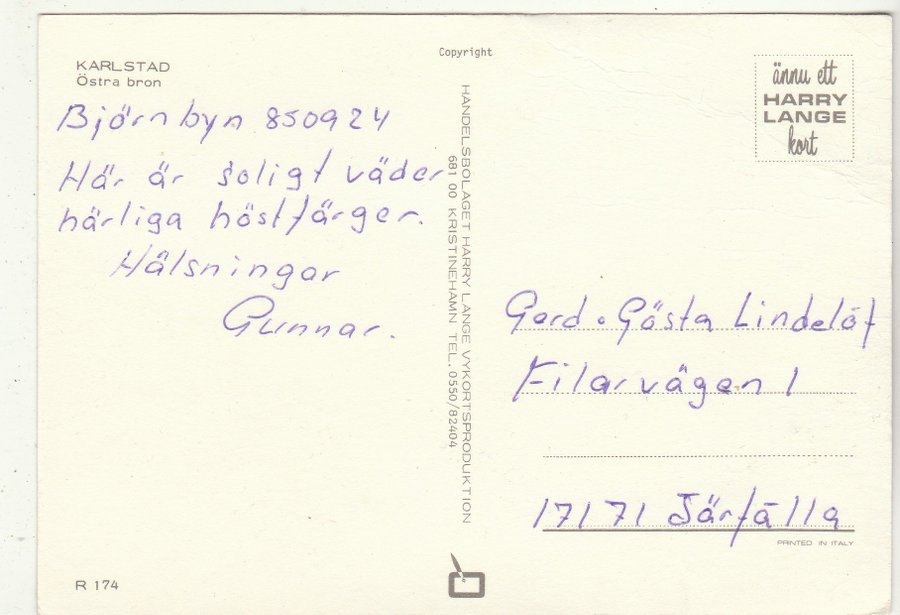 KARLSTAD
Östra bron
Björnbyn 850924
Här är soligt väder
härliga höstfärger.
Hälsningar
Gunnar.
Copyright
HANDELSBOLAGET HARRY LANGE VYKORTSPRODUKTION
681 00 KRISTINEHAMN TEL. 0550/82404
ännu ett
HARRY
LANGE
kort
Gerd o Gösta Lindelöf
Filarvägen 1
17171 Järfälla
PRINTED IN ITALY
R 174